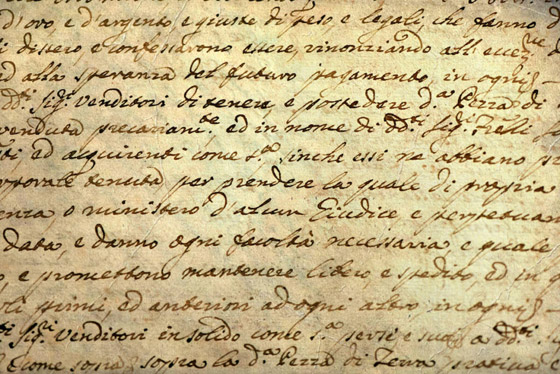 d'oro e d'argento e giuste di peso e legali, che fanno
distero, e confessarono essere, rinonziando all' eccez.ne
ed alla speranza del futuro pagamento, in ogni
dd.ti Sig.ri Venditori di tenere, e possedere d.a Pezza di
venduta precariam.te, ed in nome di dd.ti Sig.ri Frelli
ti ed acquirenti come s.a, finche essi ne abbiano
corporale tenuta, per prendere la quale di propria
enza o ministero d'alcun Giudice, e perpetua
data, e danno ogni facoltà necessaria e quale
, e promettono mantenere libero, e spedito, ed in
oli primi, ed anteriori ad ogni altro in ogni
ti Sig.ri Venditori in solido come s.a per se e suoi a dd.ti
come sopra sopra la d.a Pezza di Terra prativa